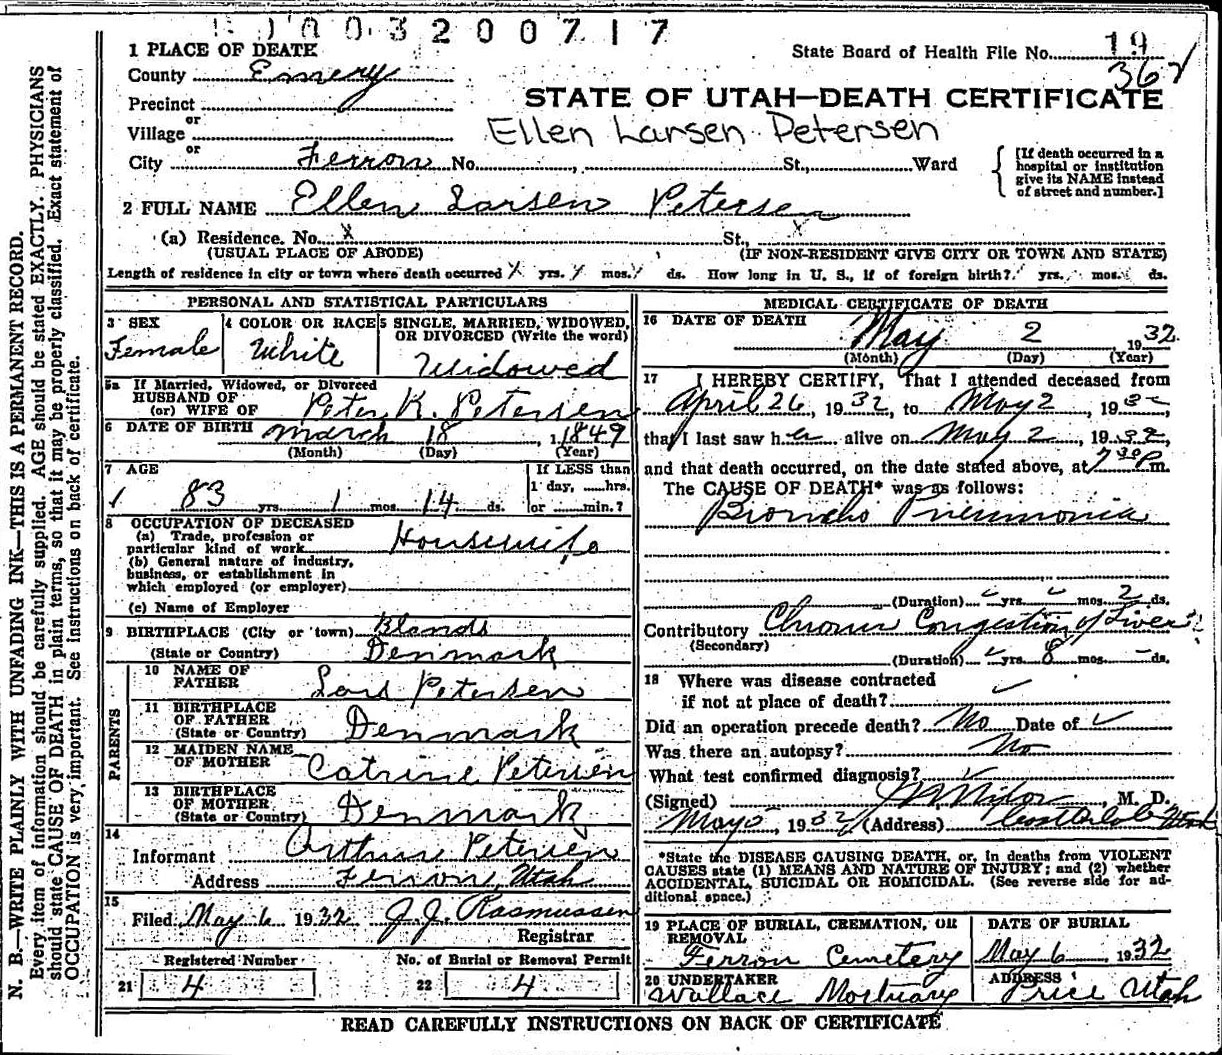 1003200717
1 PLACE OF DEATH
State Board of Health File No. 19
County Emery
367
Precinct
or
STATE OF UTAH—DEATH CERTIFICATE
Village
or
Ellen Larsen Petersen
City Ferron No. St., Ward
[If death occurred in a hospital or institution give its NAME instead of street and number.]
2 FULL NAME Ellen Larsen Petersen
(a) Residence. No. X St., X
(USUAL PLACE OF ABODE) (IF NON-RESIDENT GIVE CITY OR TOWN AND STATE)
Length of residence in city or town where death occurred yrs. mos. ds. How long in U. S., if of foreign birth? yrs. mos. ds.
PERSONAL AND STATISTICAL PARTICULARS
3 SEX
Female
4 COLOR OR RACE
White
5 SINGLE, MARRIED, WIDOWED,
OR DIVORCED (Write the word)
Widowed
5a If Married, Widowed, or Divorced
HUSBAND OF
(or) WIFE OF Peter K. Petersen
6 DATE OF BIRTH March 18, 1849
(Month) (Day) (Year)
7 AGE
83 yrs. 1 mos. 14 ds.
If LESS than
1 day, hrs.
or min.?
8 OCCUPATION OF DECEASED
(a) Trade, profession or
particular kind of work Housewife
(b) General nature of industry,
business, or establishment in
which employed (or employer)
(c) Name of Employer
9 BIRTHPLACE (City or town) Blands
(State or Country) Denmark
PARENTS
10 NAME OF
FATHER Lars Petersen
11 BIRTHPLACE
OF FATHER
(State or Country) Denmark
12 MAIDEN NAME
OF MOTHER Catrine Petersen
13 BIRTHPLACE
OF MOTHER
(State or Country) Denmark
14
Informant Arthur Petersen
Address Ferron, Utah
15
Filed May 6 1932 J. J. Rasmussen
Registrar
Registered Number No. of Burial or Removal Permit
21 4 22 4
MEDICAL CERTIFICATE OF DEATH
16 DATE OF DEATH
May 2 1932
(Month) (Day) (Year)
17 I HEREBY CERTIFY, That I attended deceased from
April 26, 1932, to May 2, 1932
that I last saw her alive on May 2, 1932,
and that death occurred, on the date stated above, at 7 30 P m.
The CAUSE OF DEATH* was as follows:
Broncho Pneumonia
(Duration) yrs. mos. 2 ds.
Contributory Chronic Congestion of Liver
(Secondary)
(Duration) yrs. 8 mos. ds.
18 Where was disease contracted
if not at place of death?
Did an operation precede death? No Date of
Was there an autopsy? No
What test confirmed diagnosis?
(Signed) M. D.
May 5, 1932 (Address) Castle Dale Utah
*State the DISEASE CAUSING DEATH, or, in deaths from VIOLENT
CAUSES state (1) MEANS AND NATURE OF INJURY; and (2) whether
ACCIDENTAL, SUICIDAL OR HOMICIDAL. (See reverse side for ad-
ditional space.)
19 PLACE OF BURIAL, CREMATION, OR
REMOVAL
Ferron Cemetery
DATE OF BURIAL
May 6 1932
20 UNDERTAKER
Wallace Mortuary
ADDRESS
Price Utah
READ CAREFULLY INSTRUCTIONS ON BACK OF CERTIFICATE
N. B.—WRITE PLAINLY WITH UNFADING INK—THIS IS A PERMANENT RECORD.
Every item of information should be carefully supplied. AGE should be stated EXACTLY. PHYSICIANS
should state CAUSE OF DEATH in plain terms, so that it may be properly classified. Exact statement of
OCCUPATION is very important. See instructions on back of certificate.